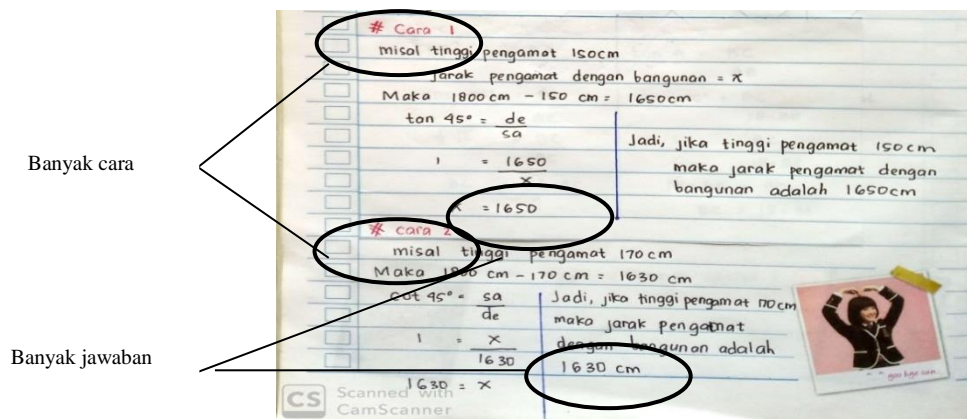 # Cara 1
misal tinggi pengamat 150cm
jarak pengamat dengan bangunan = x
Maka 1800 cm - 150 cm = 1650cm
tan 45° = de
sa
1 = 1650
x
x = 1650
Jadi, jika tinggi pengamat 150cm
maka jarak pengamat dengan
bangunan adalah 1650cm
# cara 2
misal tinggi pengamat 170 cm
Maka 1800 cm - 170 cm = 1630 cm
cot 45° = sa
de
1 = x
1630
1630 = x
Jadi, jika tinggi pengamat 170 cm
maka jarak pengamat
dengan bangunan adalah
1630 cm
Banyak cara
Banyak jawaban
CS Scanned with
CamScanner